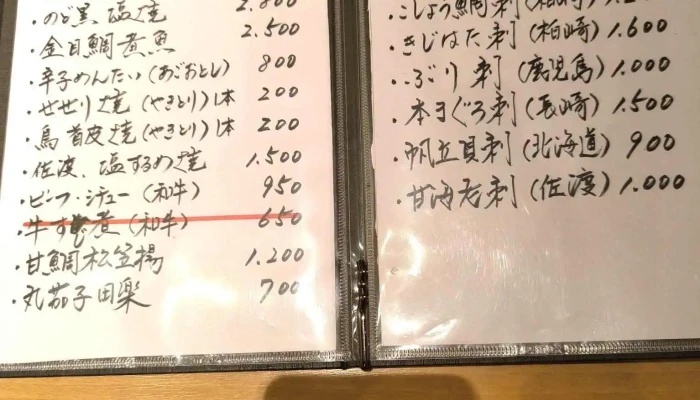 ・のど黒、塩焼 2.800
・金目鯛煮魚 2.500
・辛子めんたい(あごおとし) 800
・せせり焼(やきとり)1本 200
・鳥首皮焼(やきとり)1本 200
・佐渡、塩するめ焼 1.500
・ビーフ・シチュー(和牛) 950
・牛すじ煮(和牛) 650
・甘鯛松笠揚 1.200
・丸茄子田楽 700
・こしょう鯛刺(柏崎)
・きじはた刺(柏崎)1.600
・ぶり刺(鹿児島)1.000
・本まぐろ刺(長崎)1.500
・帆立貝刺(北海道)900
・甘海老刺(佐渡)1.000